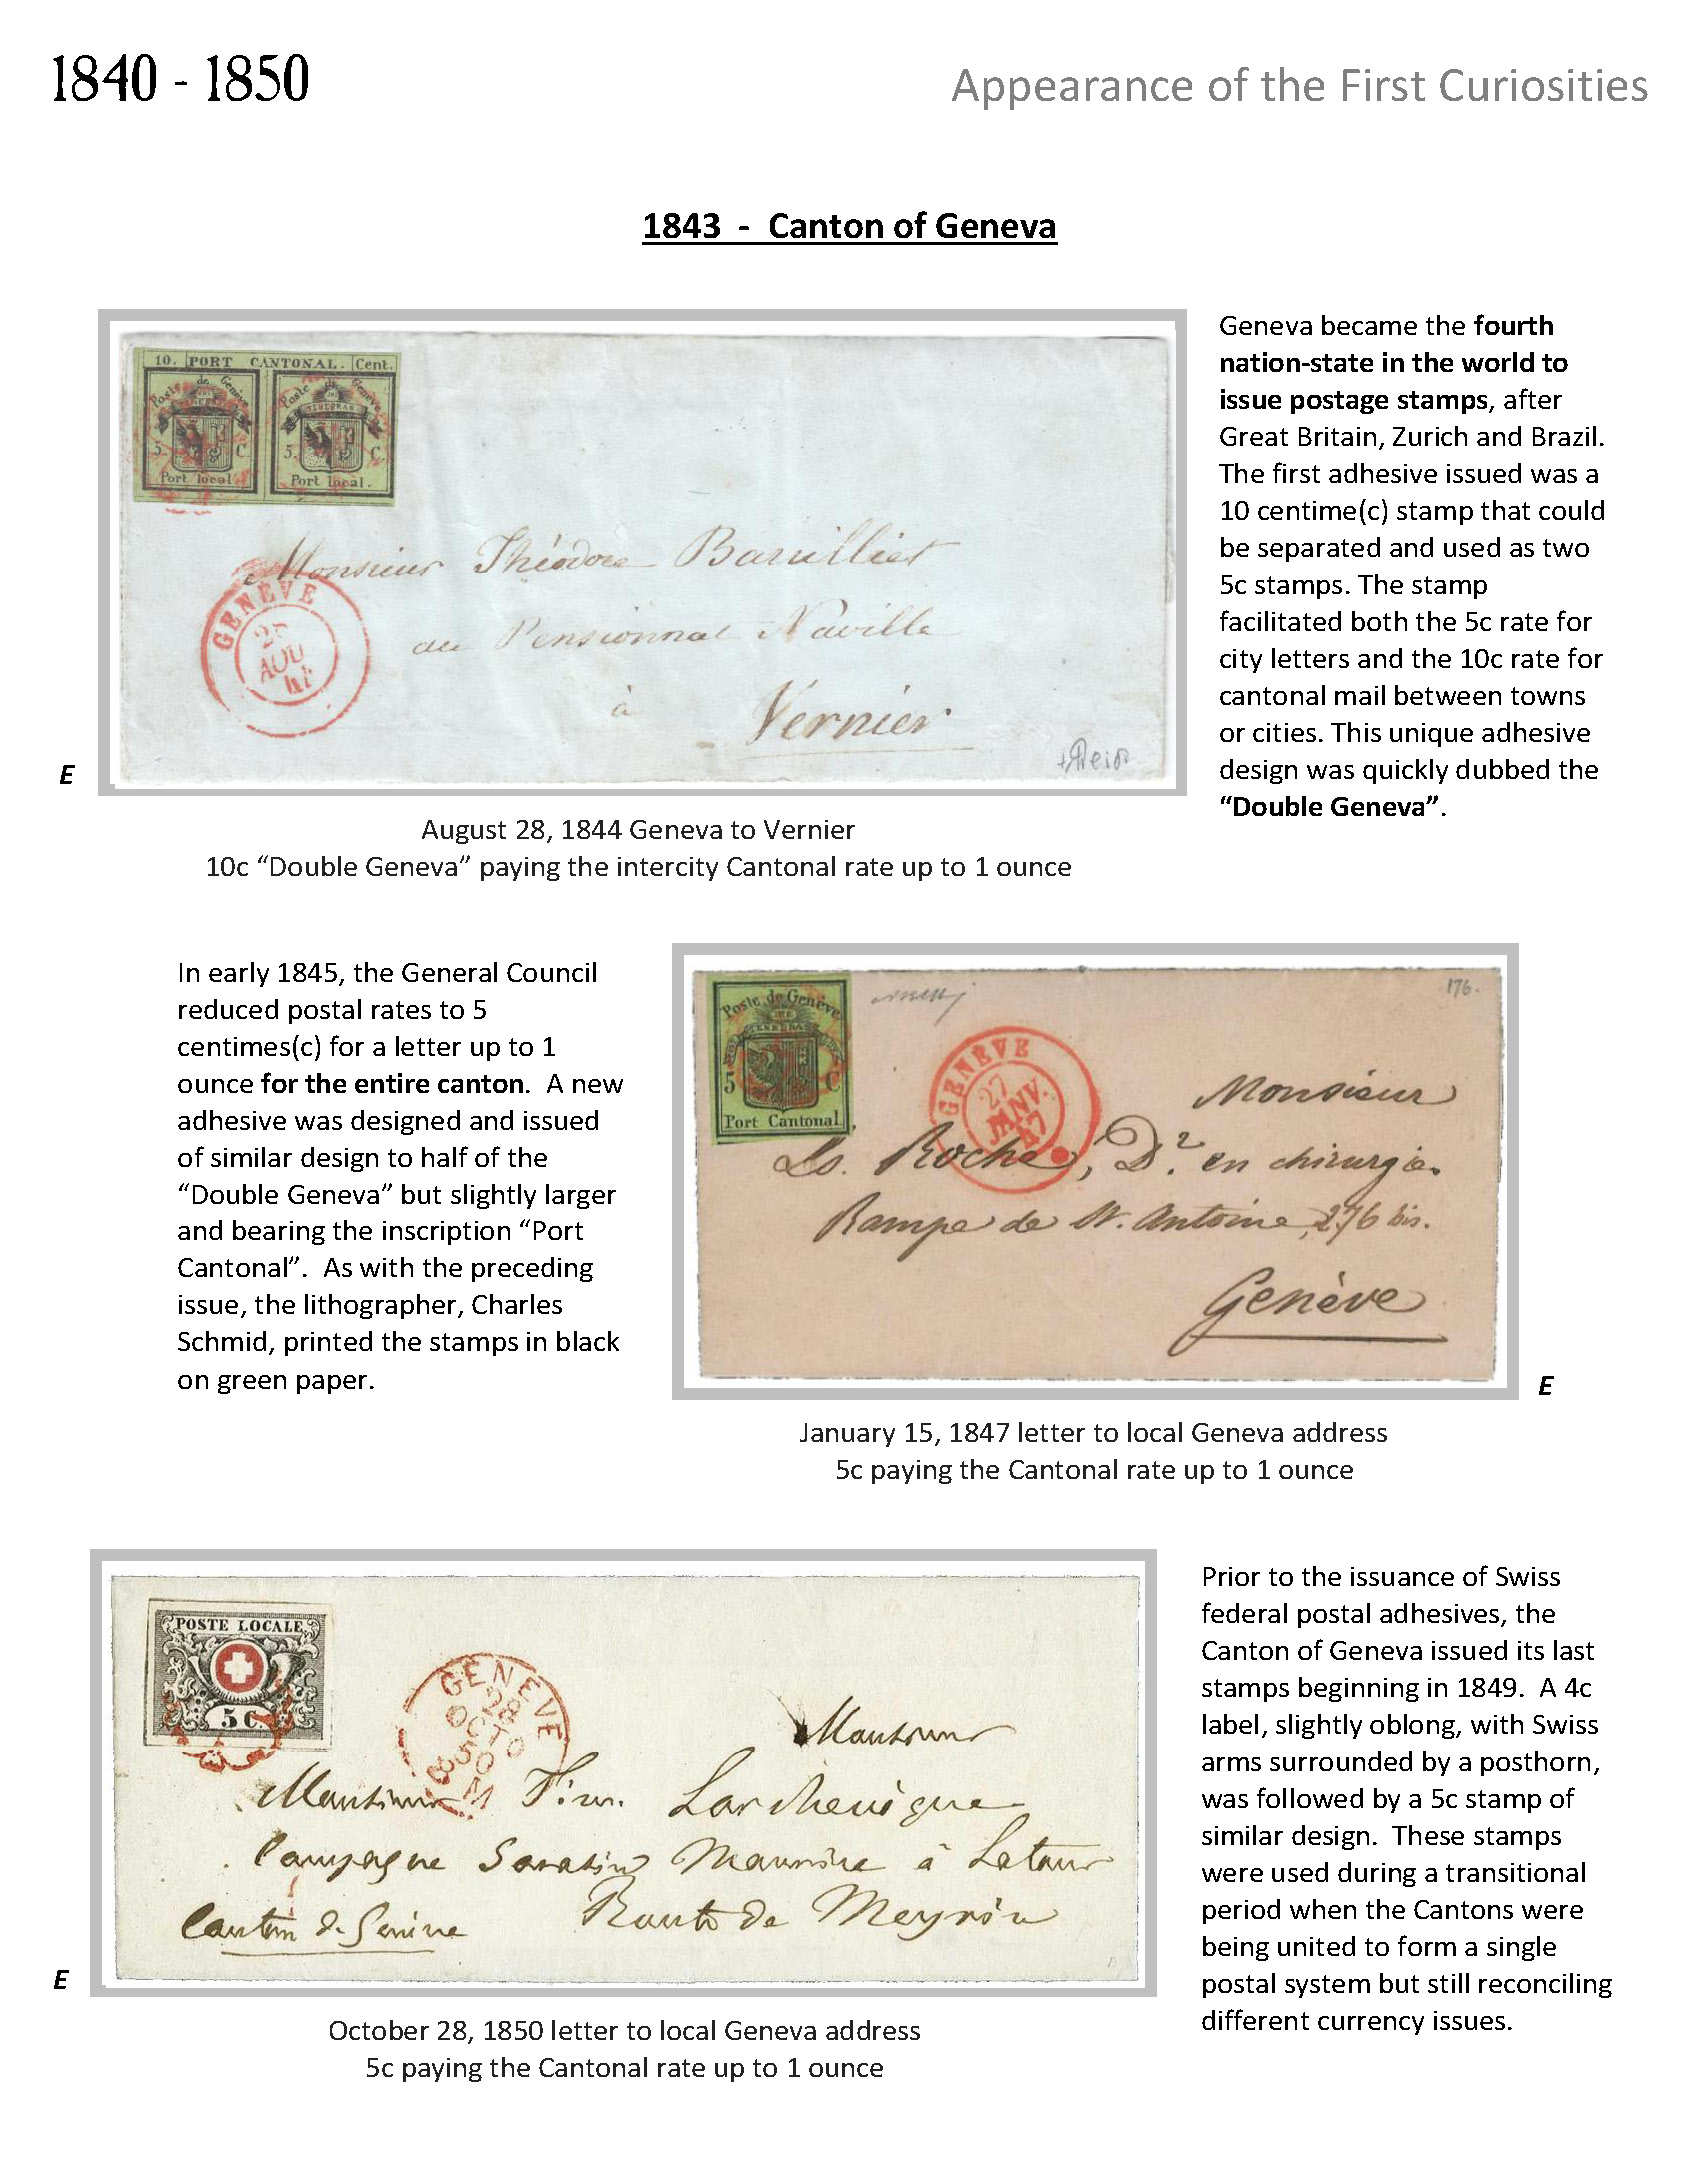 1840 - 1850
Appearance of the First Curiosities
1843 - Canton of Geneva
10. PORT CANTONAL. Cent.
Poste de Genève
5 C.
Port local
Poste de Genève
5 C.
Port local.
Monsieur Théodore
GENEVE
AOU
44
au Pensionnat Naville
à
Vernier
E
August 28, 1844 Geneva to Vernier
10c “Double Geneva” paying the intercity Cantonal rate up to 1 ounce
Geneva became the fourth
nation-state in the world to
issue postage stamps, after
Great Britain, Zurich and Brazil.
The first adhesive issued was a
10 centime(c) stamp that could
be separated and used as two
5c stamps. The stamp
facilitated both the 5c rate for
city letters and the 10c rate for
cantonal mail between towns
or cities. This unique adhesive
design was quickly dubbed the
“Double Geneva”.
In early 1845, the General Council
reduced postal rates to 5
centimes(c) for a letter up to 1
ounce for the entire canton.  A new
adhesive was designed and issued
of similar design to half of the
“Double Geneva” but slightly larger
and bearing the inscription “Port
Cantonal”.  As with the preceding
issue, the lithographer, Charles
Schmid, printed the stamps in black
on green paper.
Poste de Genève
5 C
Port Cantonal.
176.
GENÈVE
27
JANV.
47
Monsieur
Ls. Roche, Dr. en chirurgie.
Rampe de St. Antoine, 276 bis.
Genève
E
January 15, 1847 letter to local Geneva address
5c paying the Cantonal rate up to 1 ounce
POSTE LOCALE
5 C.
GENEVE
28
OCT
850
M
Monsieur
Monsieur
Campagne Sarasin
Route de Meyrin
Canton de Genève
E
October 28, 1850 letter to local Geneva address
5c paying the Cantonal rate up to 1 ounce
Prior to the issuance of Swiss
federal postal adhesives, the
Canton of Geneva issued its last
stamps beginning in 1849.  A 4c
label, slightly oblong, with Swiss
arms surrounded by a posthorn,
was followed by a 5c stamp of
similar design.  These stamps
were used during a transitional
period when the Cantons were
being united to form a single
postal system but still reconciling
different currency issues.